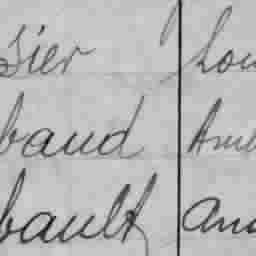 sier Lou
baud Amb
bault And